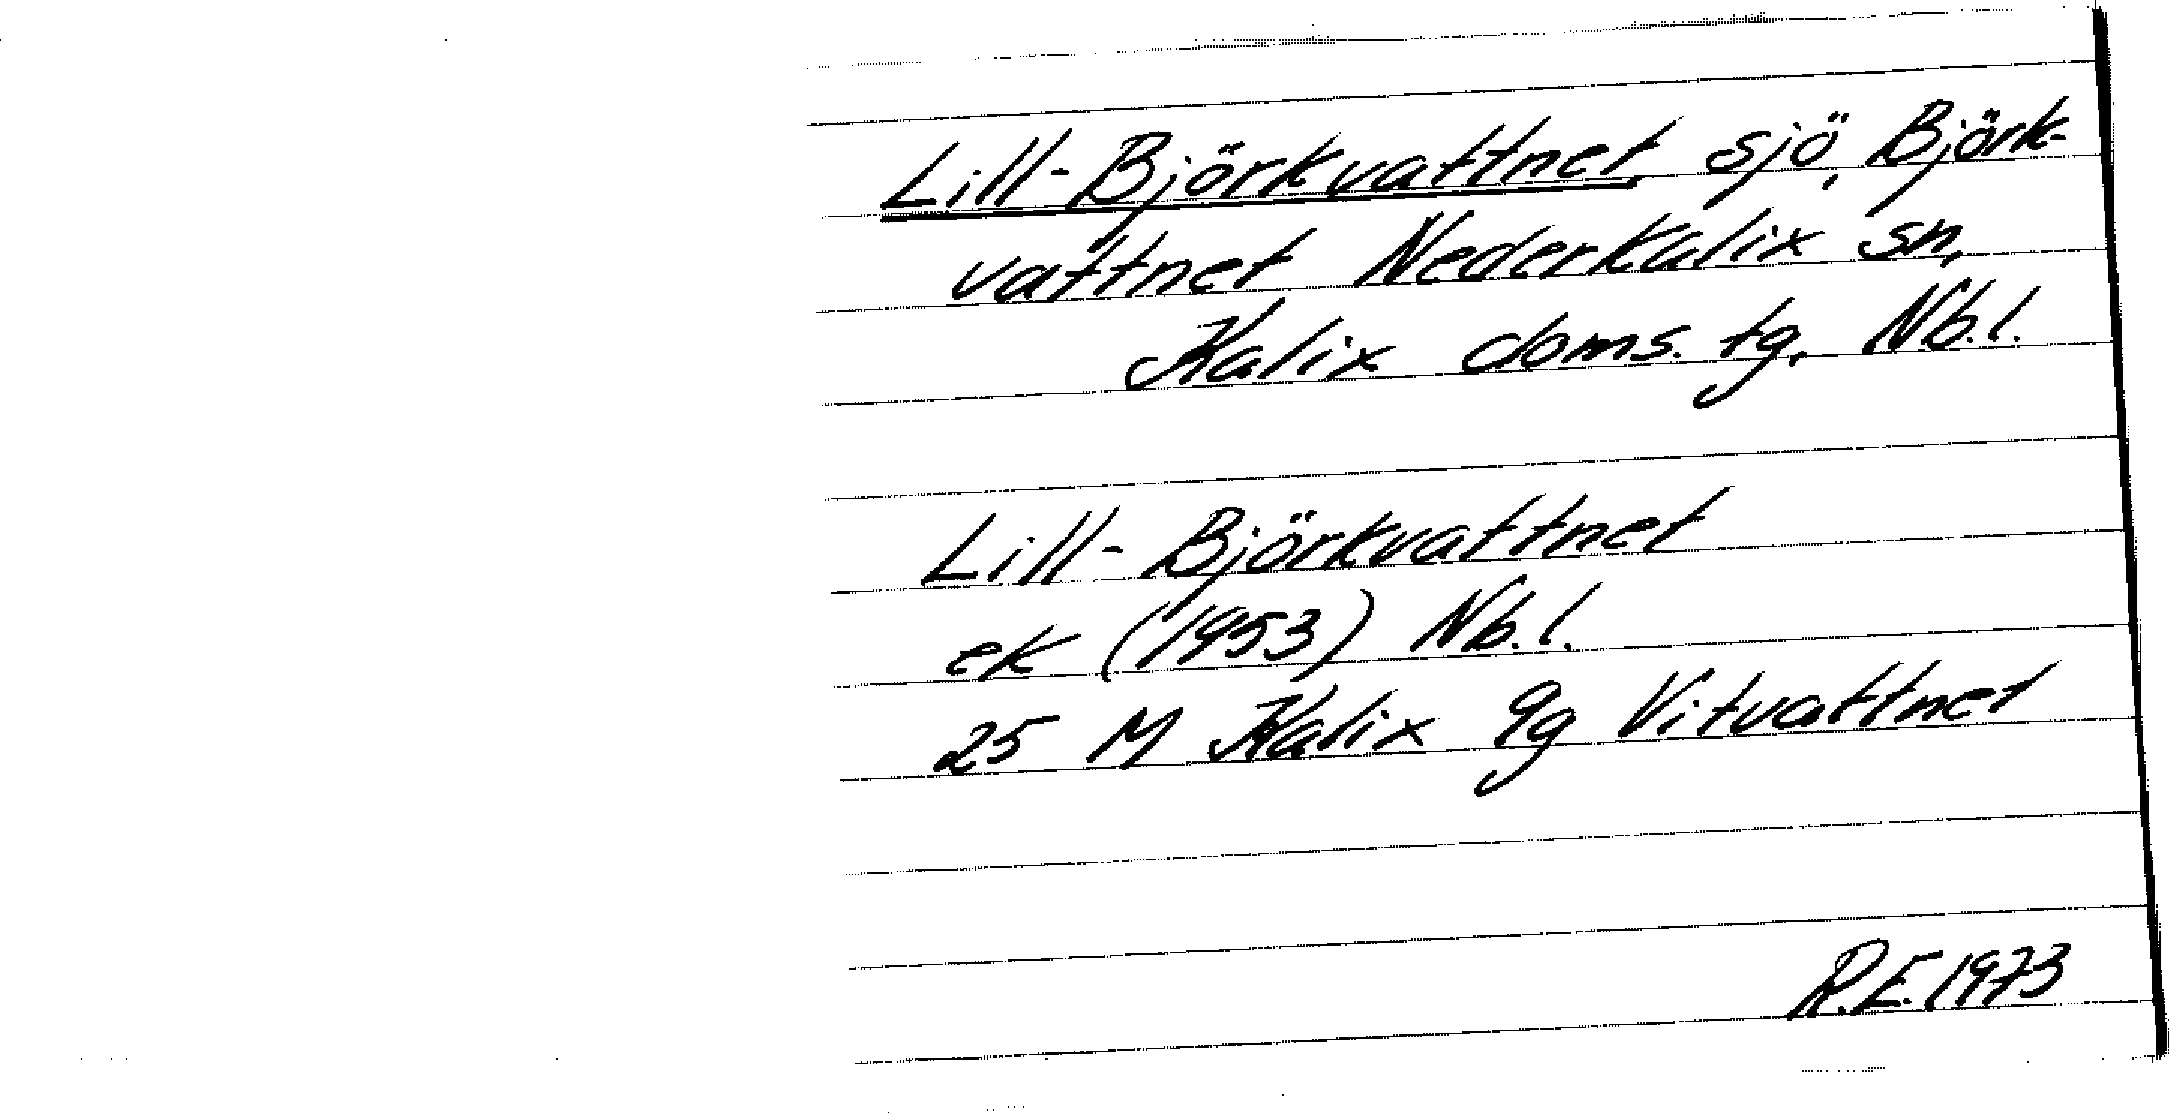 Lill-Björkvattnet, sjö, Björk-
vattnet Nederkalix sn,
Kalix doms. tg, Nb.l.
Lill-Björkvattnet
ek (1953) Nb.l.
25 M Kalix 9g Vitvattnet
R.E. 1973